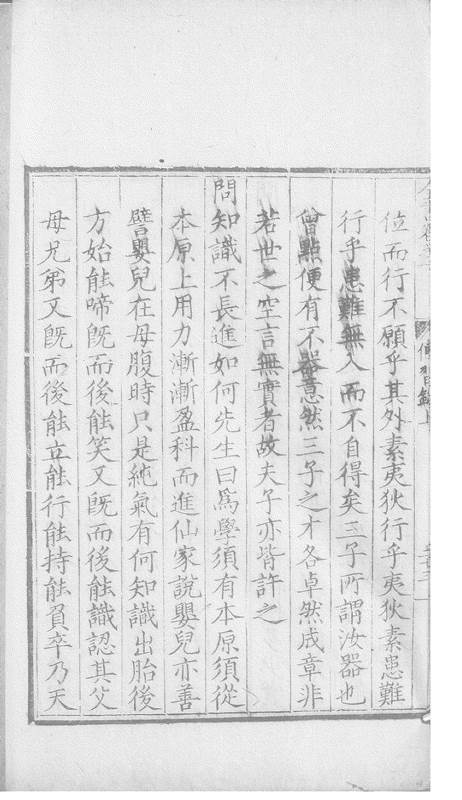 位而行不願乎其外素夷狄行乎夷狄素患難
行乎患難無入而不自得矣三子所謂汝器也
曾點便有不器意然三子之才各卓然成章非
若世之空言無實者故夫子亦皆許之
問知識不長進如何先生曰爲學須有本原須從
本原上用力漸漸盈科而進仙家說嬰兒亦善
譬嬰兒在母腹時只是純氣有何知識出胎後
方始能啼旣而後能笑又旣而後能識認其父
母兄弟又旣而後能立能行能持能負卒乃天